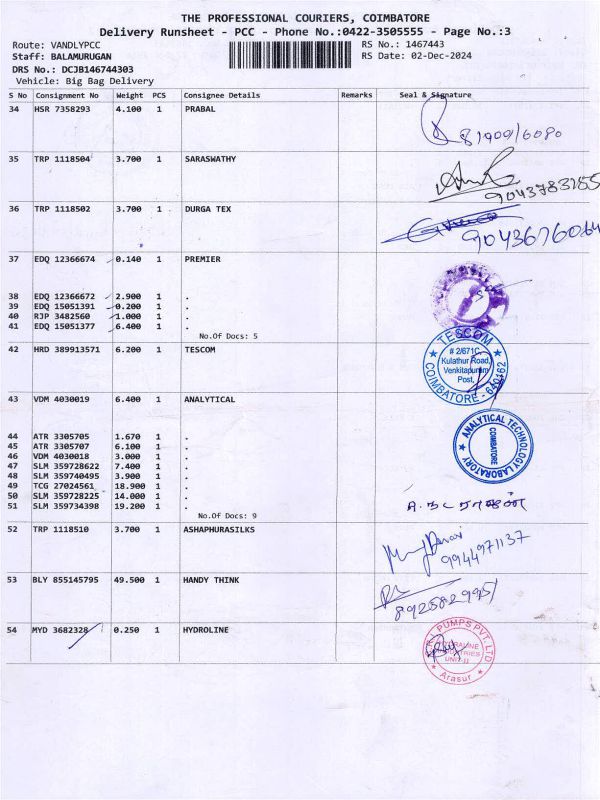 THE PROFESSIONAL COURIERS, COIMBATORE
Delivery Runsheet - PCC - Phone No.:0422-3505555 - Page No.:3
Route: VANDLYPCC RS No.: 1467443
Staff: BALAMURUGAN RS Date: 02-Dec-2024
DRS No.: DCJB146744303
Vehicle: Big Bag Delivery
S No Consignment No Weight PCS Consignee Details Remarks Seal & Signature
34 HSR 7358293 4.100 1 PRABAL
35 TRP 1118504 3.700 1 SARASWATHY
9043783155
36 TRP 1118502 3.700 1 DURGA TEX
9043676064
37 EDQ 12366674 0.140 1 PREMIER
38 EDQ 12366672 2.900 1 .
39 EDQ 15051391 0.200 1 .
40 RJP 3482560 1.000 1 .
41 EDQ 15051377 6.400 1 .
No.Of Docs: 5
42 HRD 389913571 6.200 1 TESCOM
TESCOM
# 2/671C,
Kulathur Road,
Venkitapuram
Post,
COIMBATORE - 640162
43 VDM 4030019 6.400 1 ANALYTICAL
ANALYTICAL TECHNOLOGY LABORATORY
COIMBATORE
44 ATR 3305705 1.670 1 .
45 ATR 3305707 6.100 1 .
46 VDM 4030018 3.000 1 .
47 SLM 359728622 7.400 1 .
48 SLM 359740495 3.900 1 .
49 TCG 27024561 18.900 1 .
50 SLM 359728225 14.000 1 .
51 SLM 359734398 19.200 1 .
No.Of Docs: 9
அ. நடராஜன்
52 TRP 1118510 3.700 1 ASHAPHURASILKS
9944971137
53 BLY 855145795 49.500 1 HANDY THINK
8925829951
54 MYD 3682328 0.250 1 HYDROLINE
PUMPS PVT. LTD
UNIT-II
Arasur